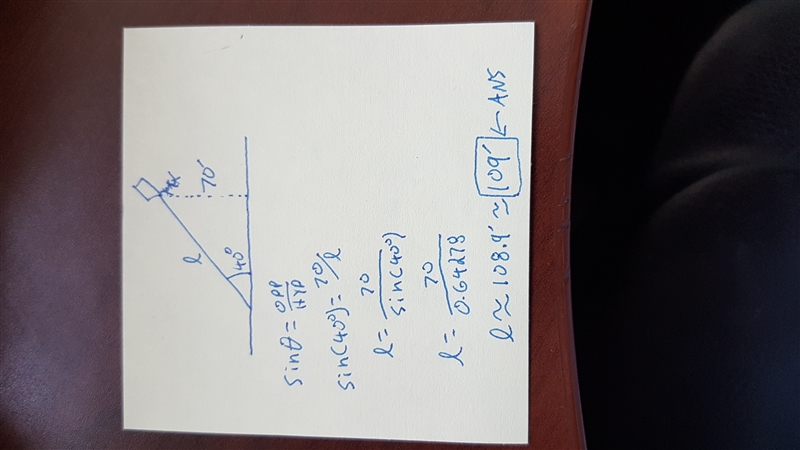 70'
l
40°
sinθ = OPP/HYP
sin(40°) = 70/l
l = 70/sin(40°)
l = 70/0.64278
l ≈ 108.9' ≈ 109' ← ANS